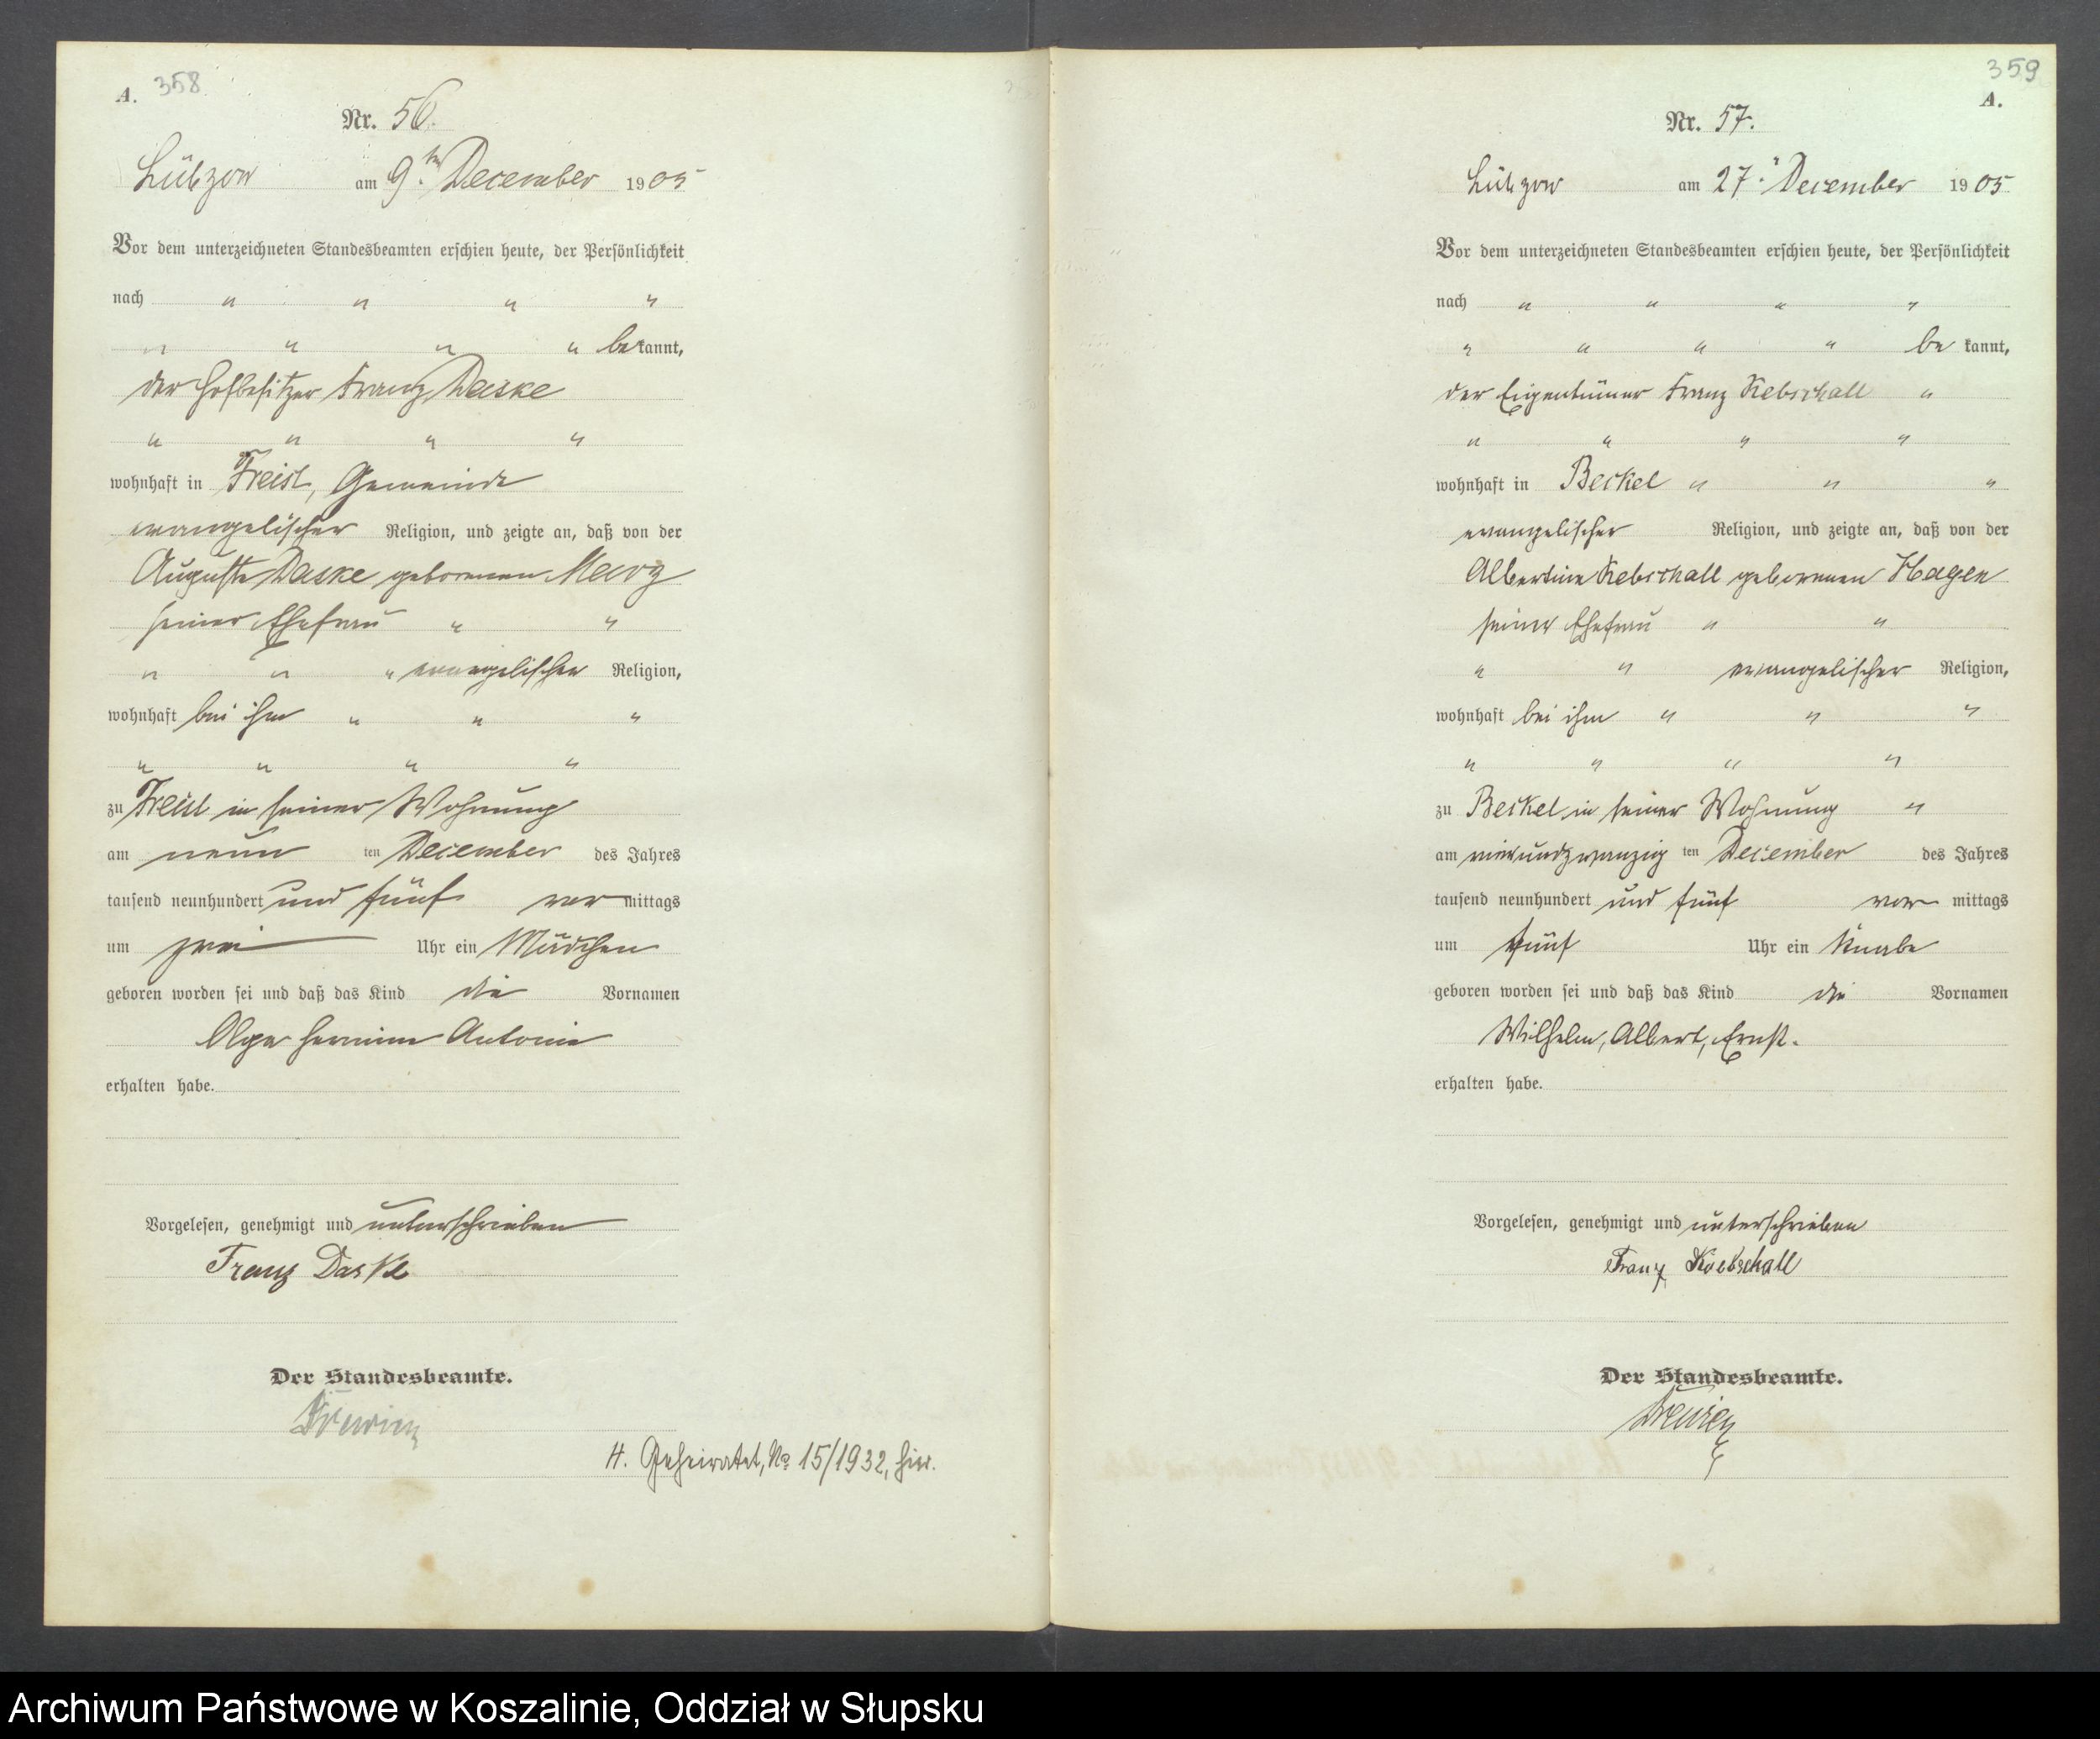 A. 358
Nr. 56.
Lübzow am 9ten December 1905
Vor dem unterzeichneten Standesbeamten erschien heute, der Persönlichkeit
nach " " " "
" " " " bekannt,
der Hofbesitzer Franz Daske
" " " "
wohnhaft in Freist, Gemeinde
evangelischer Religion, und zeigte an, daß von der
Auguste Daske geborenen
seiner Ehefrau " "
" " " evangelischer Religion,
wohnhaft bei ihm " " "
" " " "
zu Freist in seiner Wohnung
am neun ten December des Jahres
tausend neunhundert und fünf vor mittags
um zwei Uhr ein Mädchen
geboren worden sei und daß das Kind die Vornamen
Olga Hermine Antonie
erhalten habe.
Vorgelesen, genehmigt und unterschrieben
Franz Daske
Der Standesbeamte.
H. Geheiratet, No 15/1932, hier.
359
A.
Nr. 57.
Lübzow am 27. December 1905
Vor dem unterzeichneten Standesbeamten erschien heute, der Persönlichkeit
nach " " " "
" " " " be kannt,
der Eigentümer Franz Kebschall "
" " " "
wohnhaft in Beckel " " "
evangelischer Religion, und zeigte an, daß von der
Albertine Kebschall geborenen Hagen
seiner Ehefrau " "
" " evangelischer Religion,
wohnhaft bei ihm " " "
" " " "
zu Beckel in seiner Wohnung "
am vierundzwanzig ten December des Jahres
tausend neunhundert und fünf vor mittags
um fünf Uhr ein Knabe
geboren worden sei und daß das Kind die Vornamen
Wilhelm, Albert, Ernst.
erhalten habe.
Vorgelesen, genehmigt und unterschrieben
Franz Koebschall
Der Standesbeamte.
Archiwum Państwowe w Koszalinie, Oddział w Słupsku